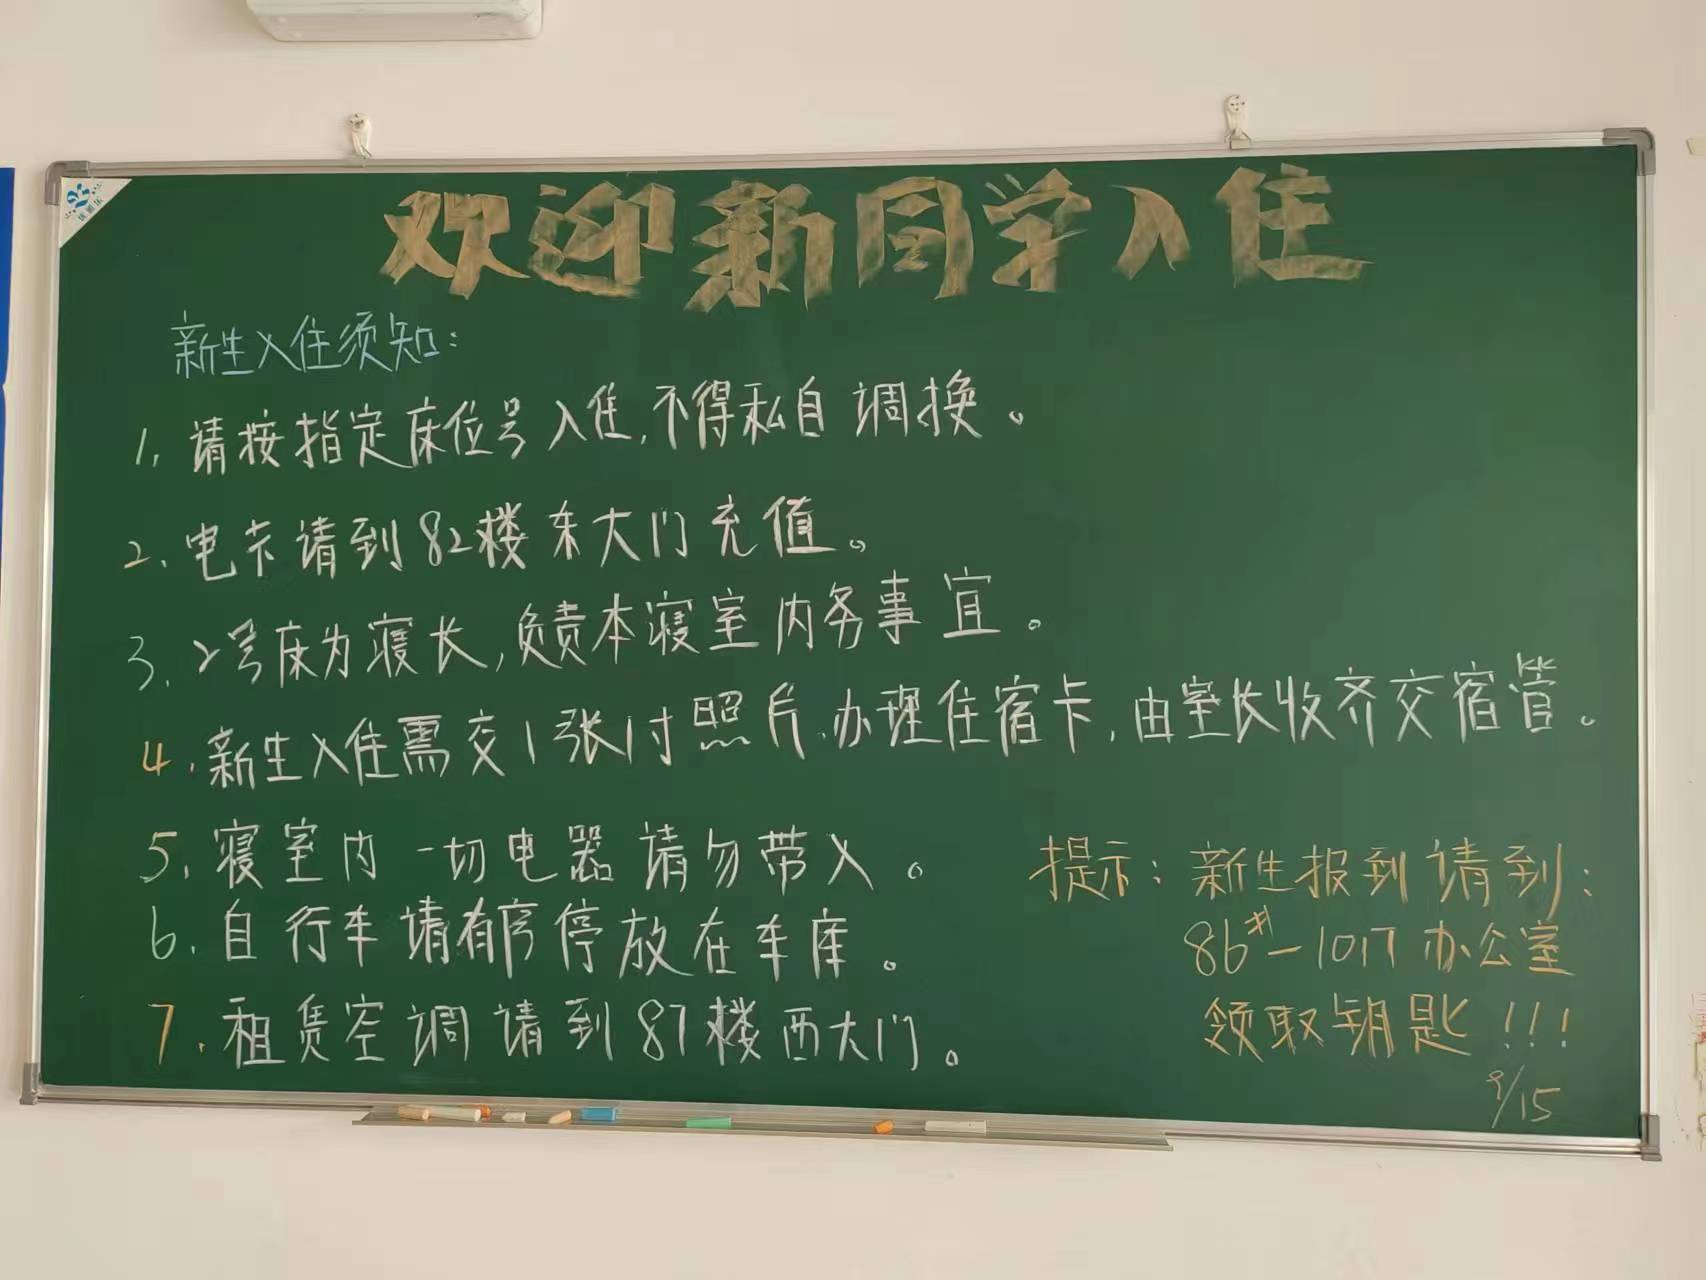 欢迎新同学入住
新生入住须知:
1. 请按指定床位号入住,不得私自调换。
2. 电卡请到82楼东大门充值。
3. 2号床为寝长,负责本寝室内务事宜。
4. 新生入住需交1张1寸照片.办理住宿卡,由室长收齐交宿管。
5. 寝室内一切电器请勿带入。
6. 自行车请有序停放在车库。
7. 租赁空调请到87楼西大门。
提示:新生报到请到:
86#-1017办公室
领取钥匙!!!
9/15